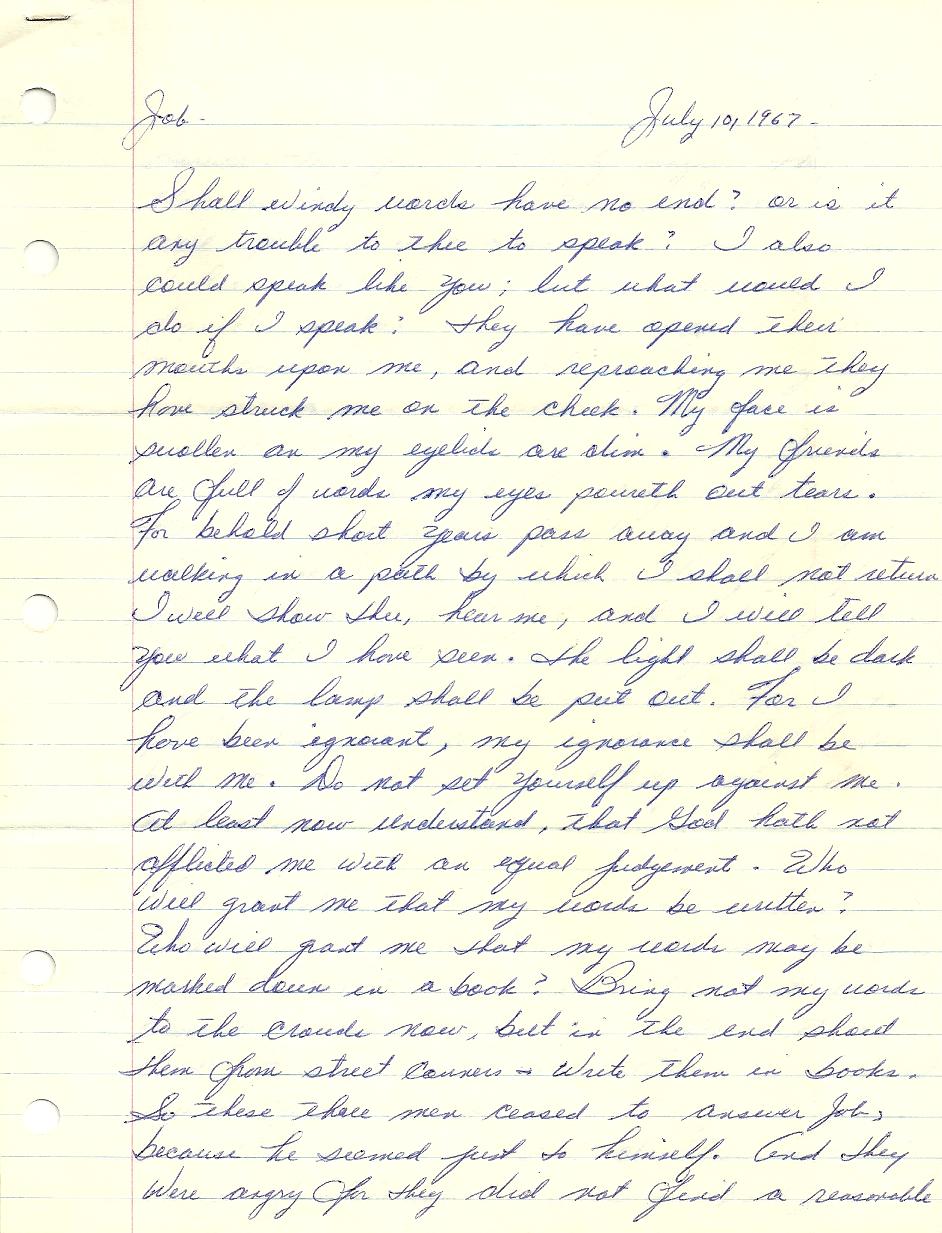 Job - July 10, 1967 -
Shall windy words have no end? or is it
any trouble to thee to speak? I also
could speak like you; but what would I
do if I speak? They have opened their
mouths upon me, and reproaching me they
have struck me on the cheek. My face is
swollen an my eyelids are dim. My friends
are full of words my eyes poureth out tears.
For behold short years pass away and I am
walking in a path by which I shall not return
I will show thee, hear me, and I will tell
you what I have seen. The light shall be dark
and the lamp shall be put out. For I
have been ignorant, my ignorance shall be
with me. Do not set yourself up against me.
At least now understand, that God hath not
afflicted me with an equal judgement. Who
will grant me that my words be written?
Who will grant me that my words may be
marked down in a book? Bring not my words
to the crowds now, but in the end shout
them from street corners - Write them in books.
So these three men ceased to answer Job,
because he seemed just to himself. And they
were angry for they did not find a reasonable